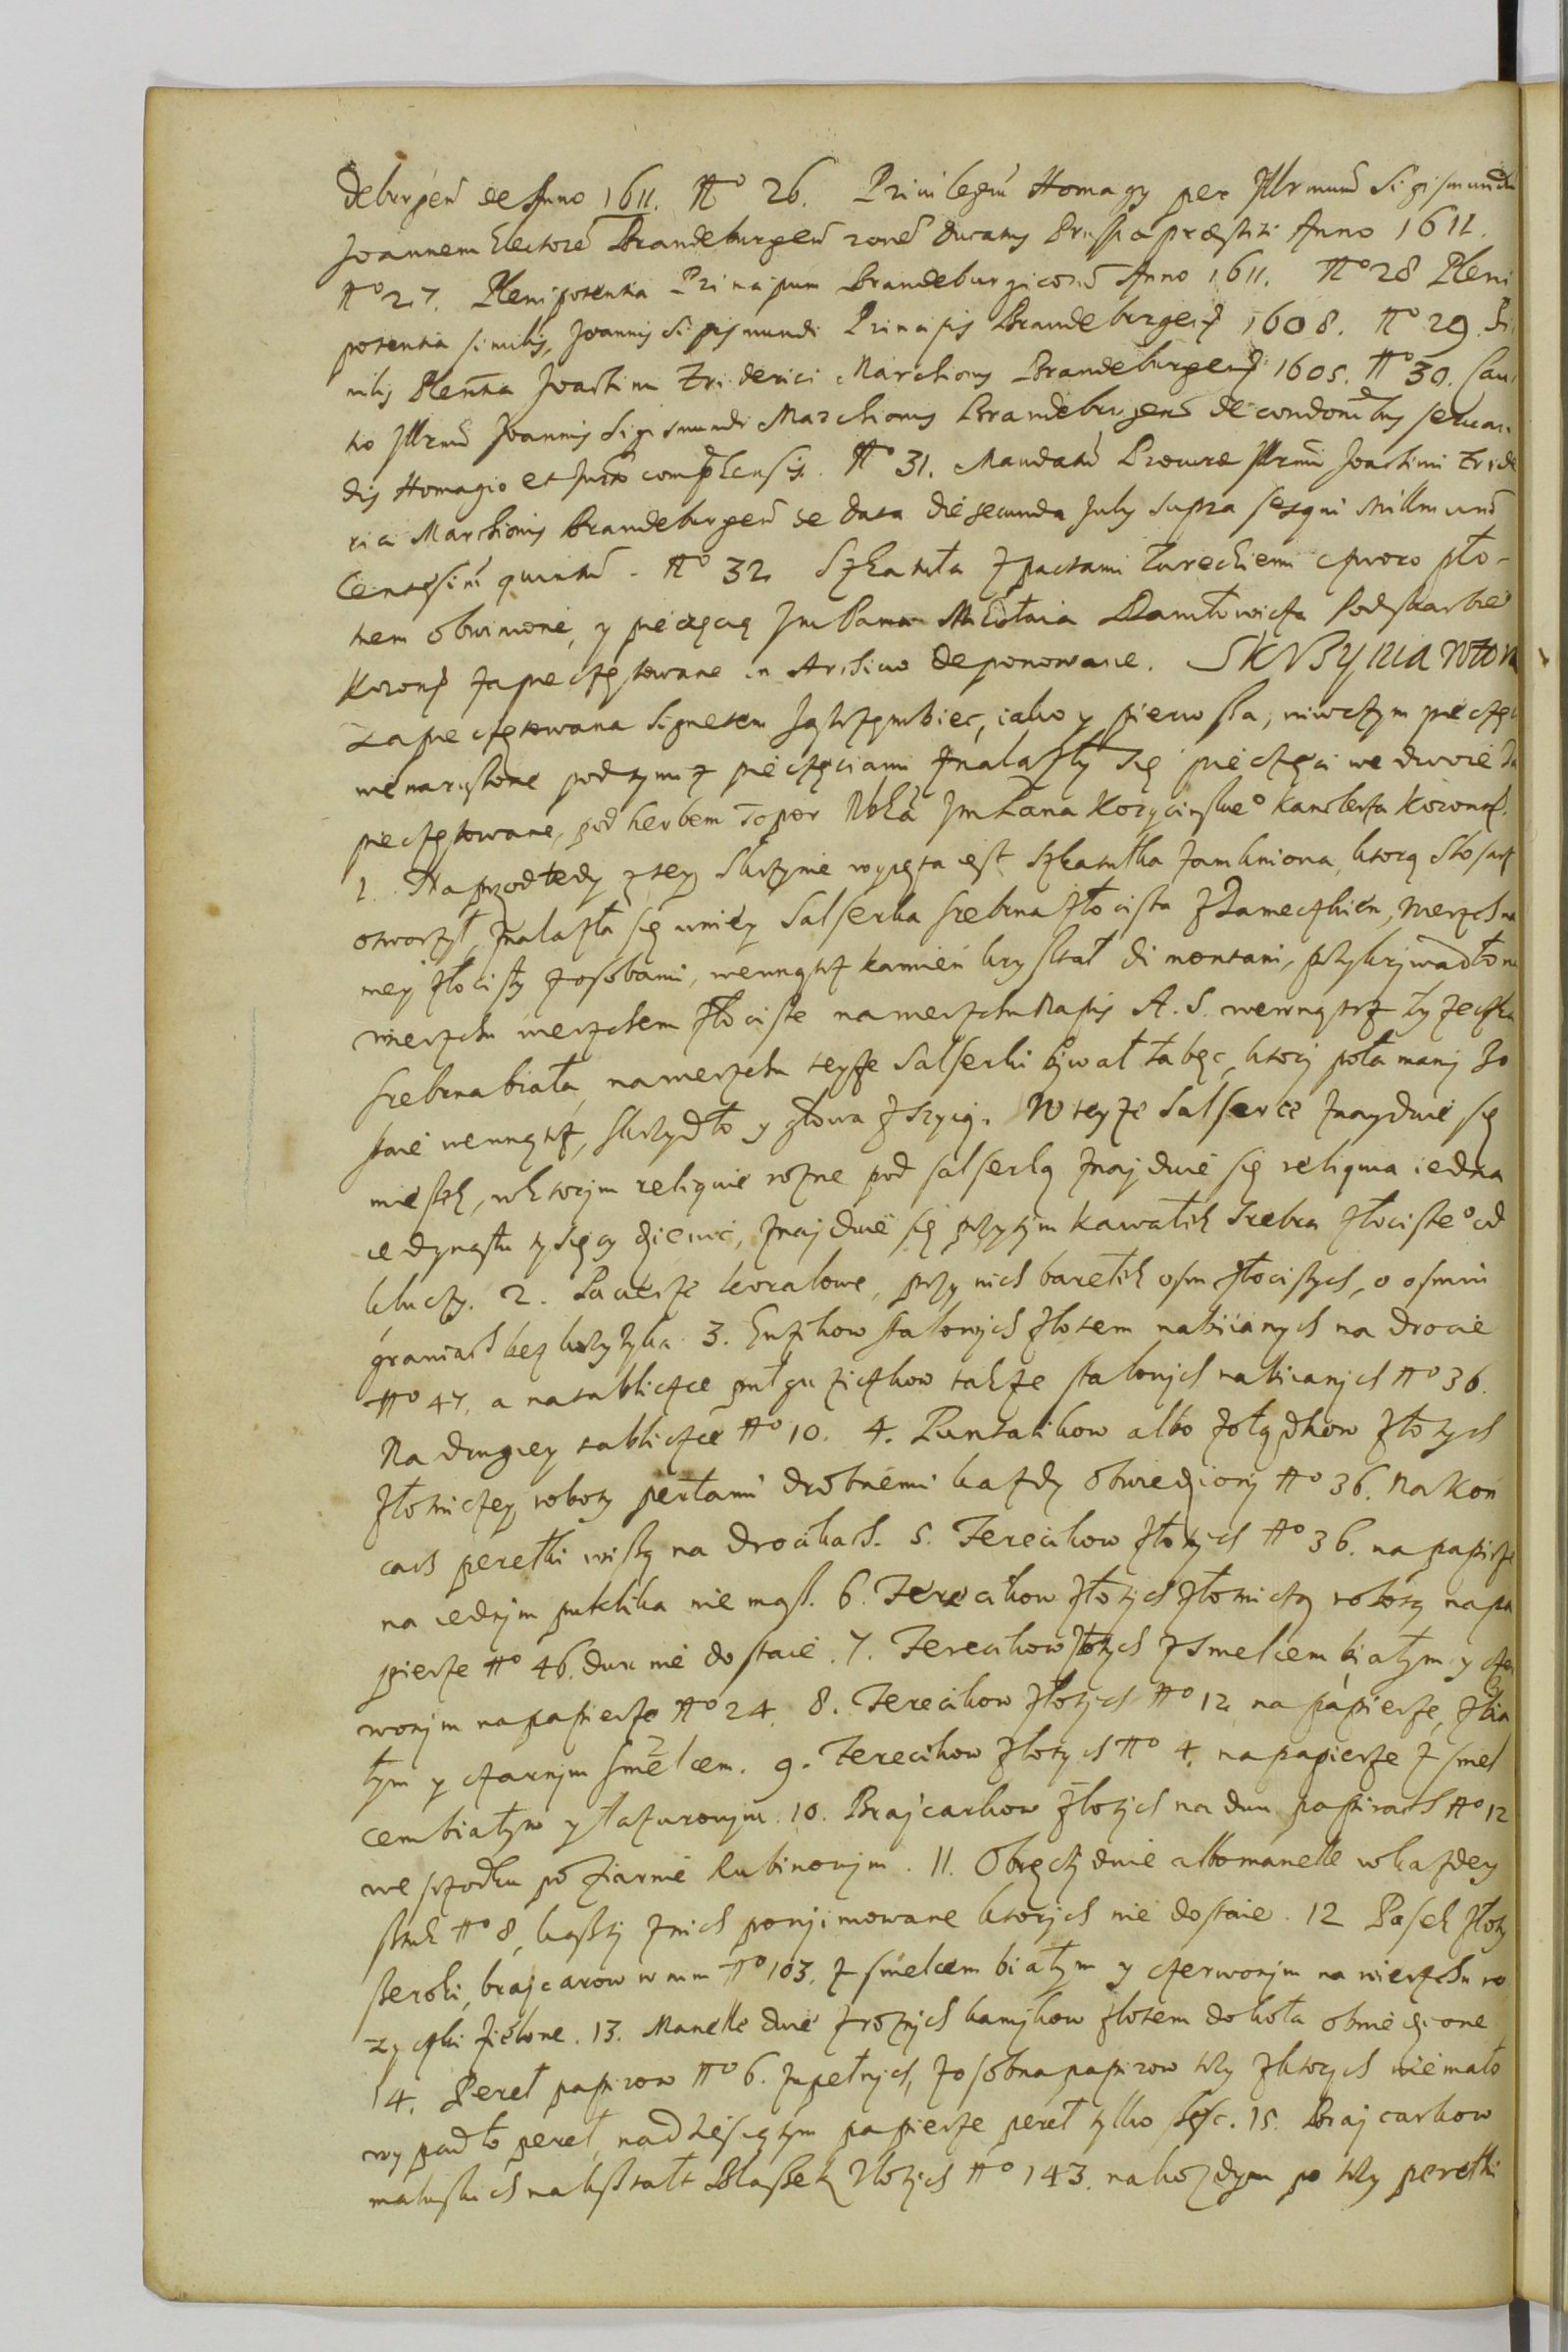 deburgen de Anno 1611. No 26. Priuilegiu Homagy per Illrmum Sigismundu
Joannem Electore Brandeburgen rone Ducatus Prussiæ præstiti Anno 1611.
No 27. Plenipotentia Principum Brandeburgicoru Anno 1611. No 28 Pleni
potentia similis, Joannis Sigismundi Principis Brandeburgen 1608. No 29. Si
milis Plentia Joachimi Friderici Marchionis Brandeburgen 1605. No 30. Cau
tio Illrmi Joannis Sigismundi Marchionis Brandeburgen de condonibus seruan
dis Homagio et complensis. No 31. Mandatu Procura Illrmi Joachimi Fride
rici Marchionis Brandeburgen de data die secunda July supra sesqui Millmum
Centesimu quintu. No 32 Szkatuła z pactami Tureckiemi czworo pło-
tnem obwinione, y pieczęcią Jm Pana Mikołaia Daniłowicza Podskarbieo
Koronn zapieczętowane in Archiuo deponowane. SKRZYNIA WTORA
Zapieczętowana Signetem Jastrzęmbiec, iako y pierwsza, niwczym pieczęci
nienaruszone pod tymi z pieczęciami znalazły się pieczęci we dwoie za
pieczętowane, pod herbem Topor Nobą Jm Pana Korycinskieo Kanclerza Koronn.
1. Naprzod tedy z tey Skrzynie wyięta iest Szkatułka zamkniona, ktorą Slosarz
otworzył, znalazła się wniey Salserka srebrna złocista z Zameczkiem, Wierzch na
niey złocisty z osobami, wewnątrz kamień krysztal di montani, przykrywadło na
wierzchu wierzchem złociste na wierzchu Napis A. S. wewnątrz łyzeczka
srebrna biała, na wierzchu teyze Salserki bywał łabęc, ktory połamany zo
staie wewnątrz, skrzydło y głowa z szyią. W teyze Salserce znayduie się
mieszek, wktorym reliquie rozne pod salserką znajduie się reliquia iedna
iedynastu tysięcy dziewic, znajduie się przytym kawałek srebra złocisteo od
kluczy. 2. Pacierze koralowe, przy nich baretek osm złocistych, o osmiu
graniach bez krzyzyka. 3. Guzikow stalowych złotem nabiianych na drocie
No 47. a na tabliczce puł guziczkow takze stalowych nabiianych No 36.
Na drugiey tabliczce No 10. 4. Puntalikow albo zołądkow złotych
złotniczey roboty perłami drobnemi kazdy obwiedziony No 36. Na kon
cach perełki wiszą na drocikach. 5. Ferecikow złotych No 36. na papirze
na iednym puklika nie masz. 6. Ferecikow złotych złotniczey roboty na pa
pierze No 46. dwu nie dostaie. 7. Ferecikow złotych z Smelcem białym y czer
wonym na papierze No 24. 8. Ferecikow złotych No 12 na papierze, z bia
łym y czarnym smelcem. 9. Ferecikow złotych No 4. na papierze z smel
cem białym y łazurowym. 10. Brajcarkow złotych na dwu papirach No 12
we srzodku po ziarnie Rubinowym. 11. Obręczy dwie albo manelle wkazdey
sztuk No 8, kąszty z nich powyimowane ktorych nie dostaie. 12 Pasek złoty
szeroki, brajcarow w nim No 103. z smelcem białym y czerwonym na wierzchu ro
zyczki zielone. 13. Manelle dwie z roznych kamykow złotem dokoła obwiedzione
14. Pereł papirow No 6. zupełnych, zosobna papirow trzy z ktorych niemało
wypadło pereł, na dziesiątym papierze pereł tylko szesc. 15. Brajcarkow
maluskich na ksztalt Blaszek złotych No 143. na kozdym po trzy perełki